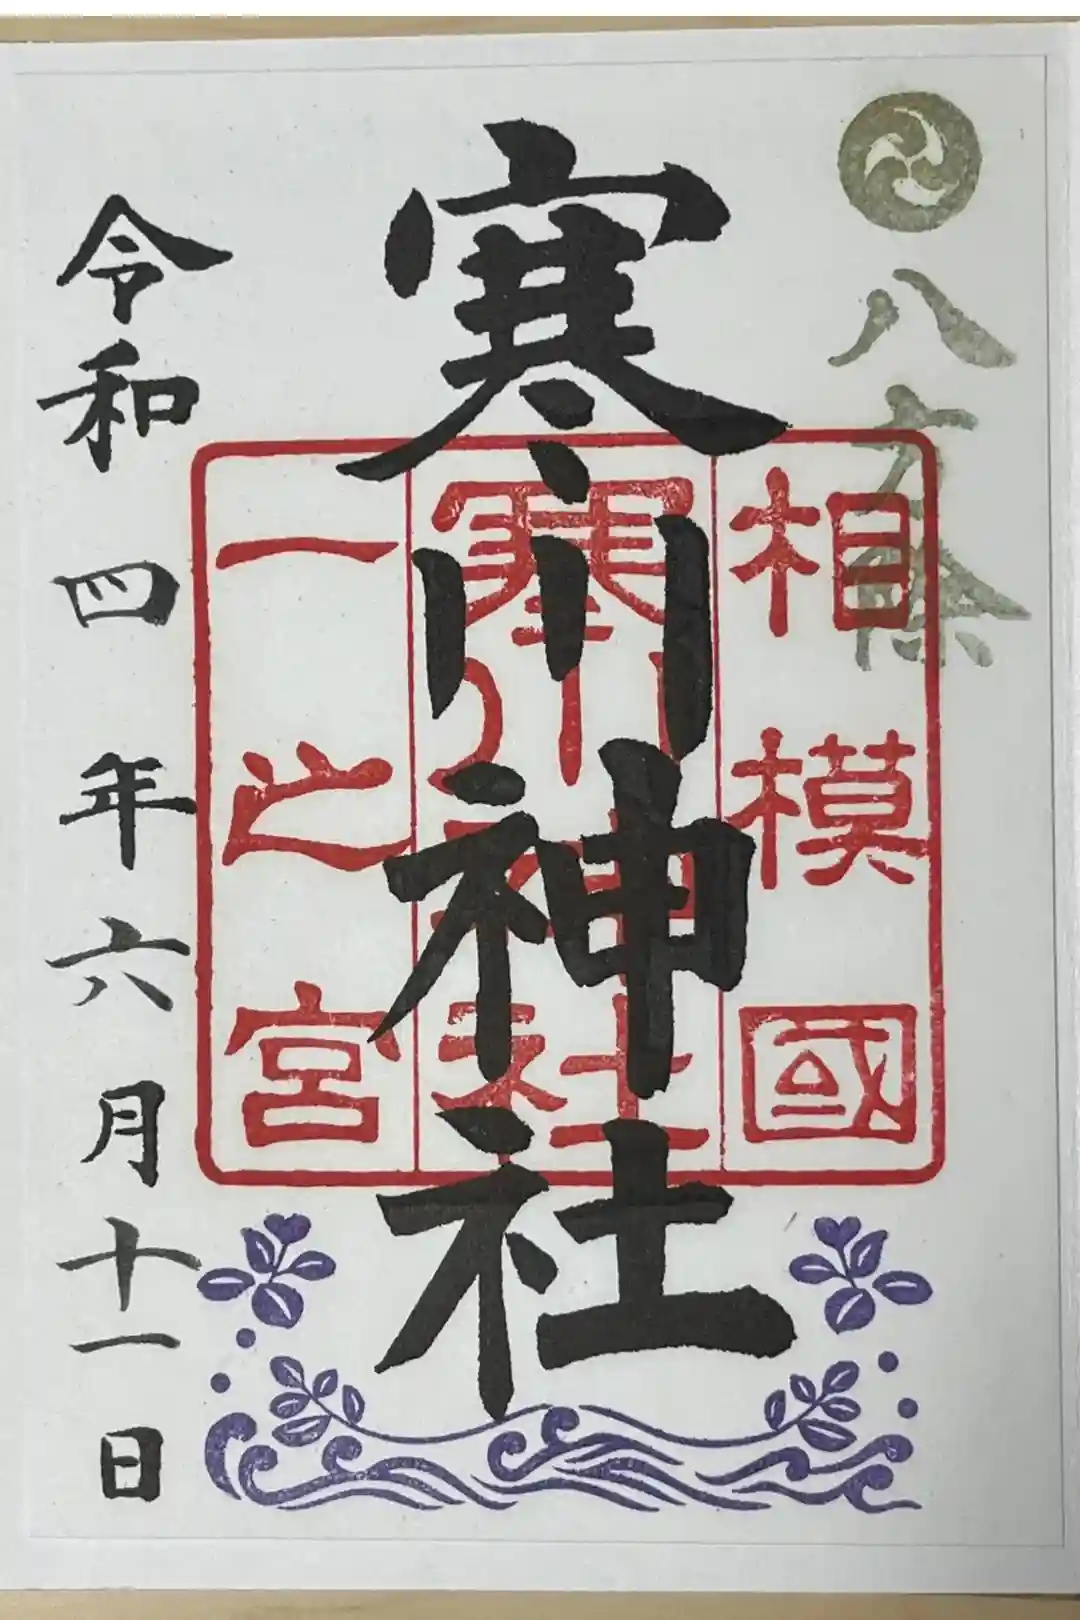 八方除
寒川神社
相模國
寒川神社
一之宮
令和四年六月十一日